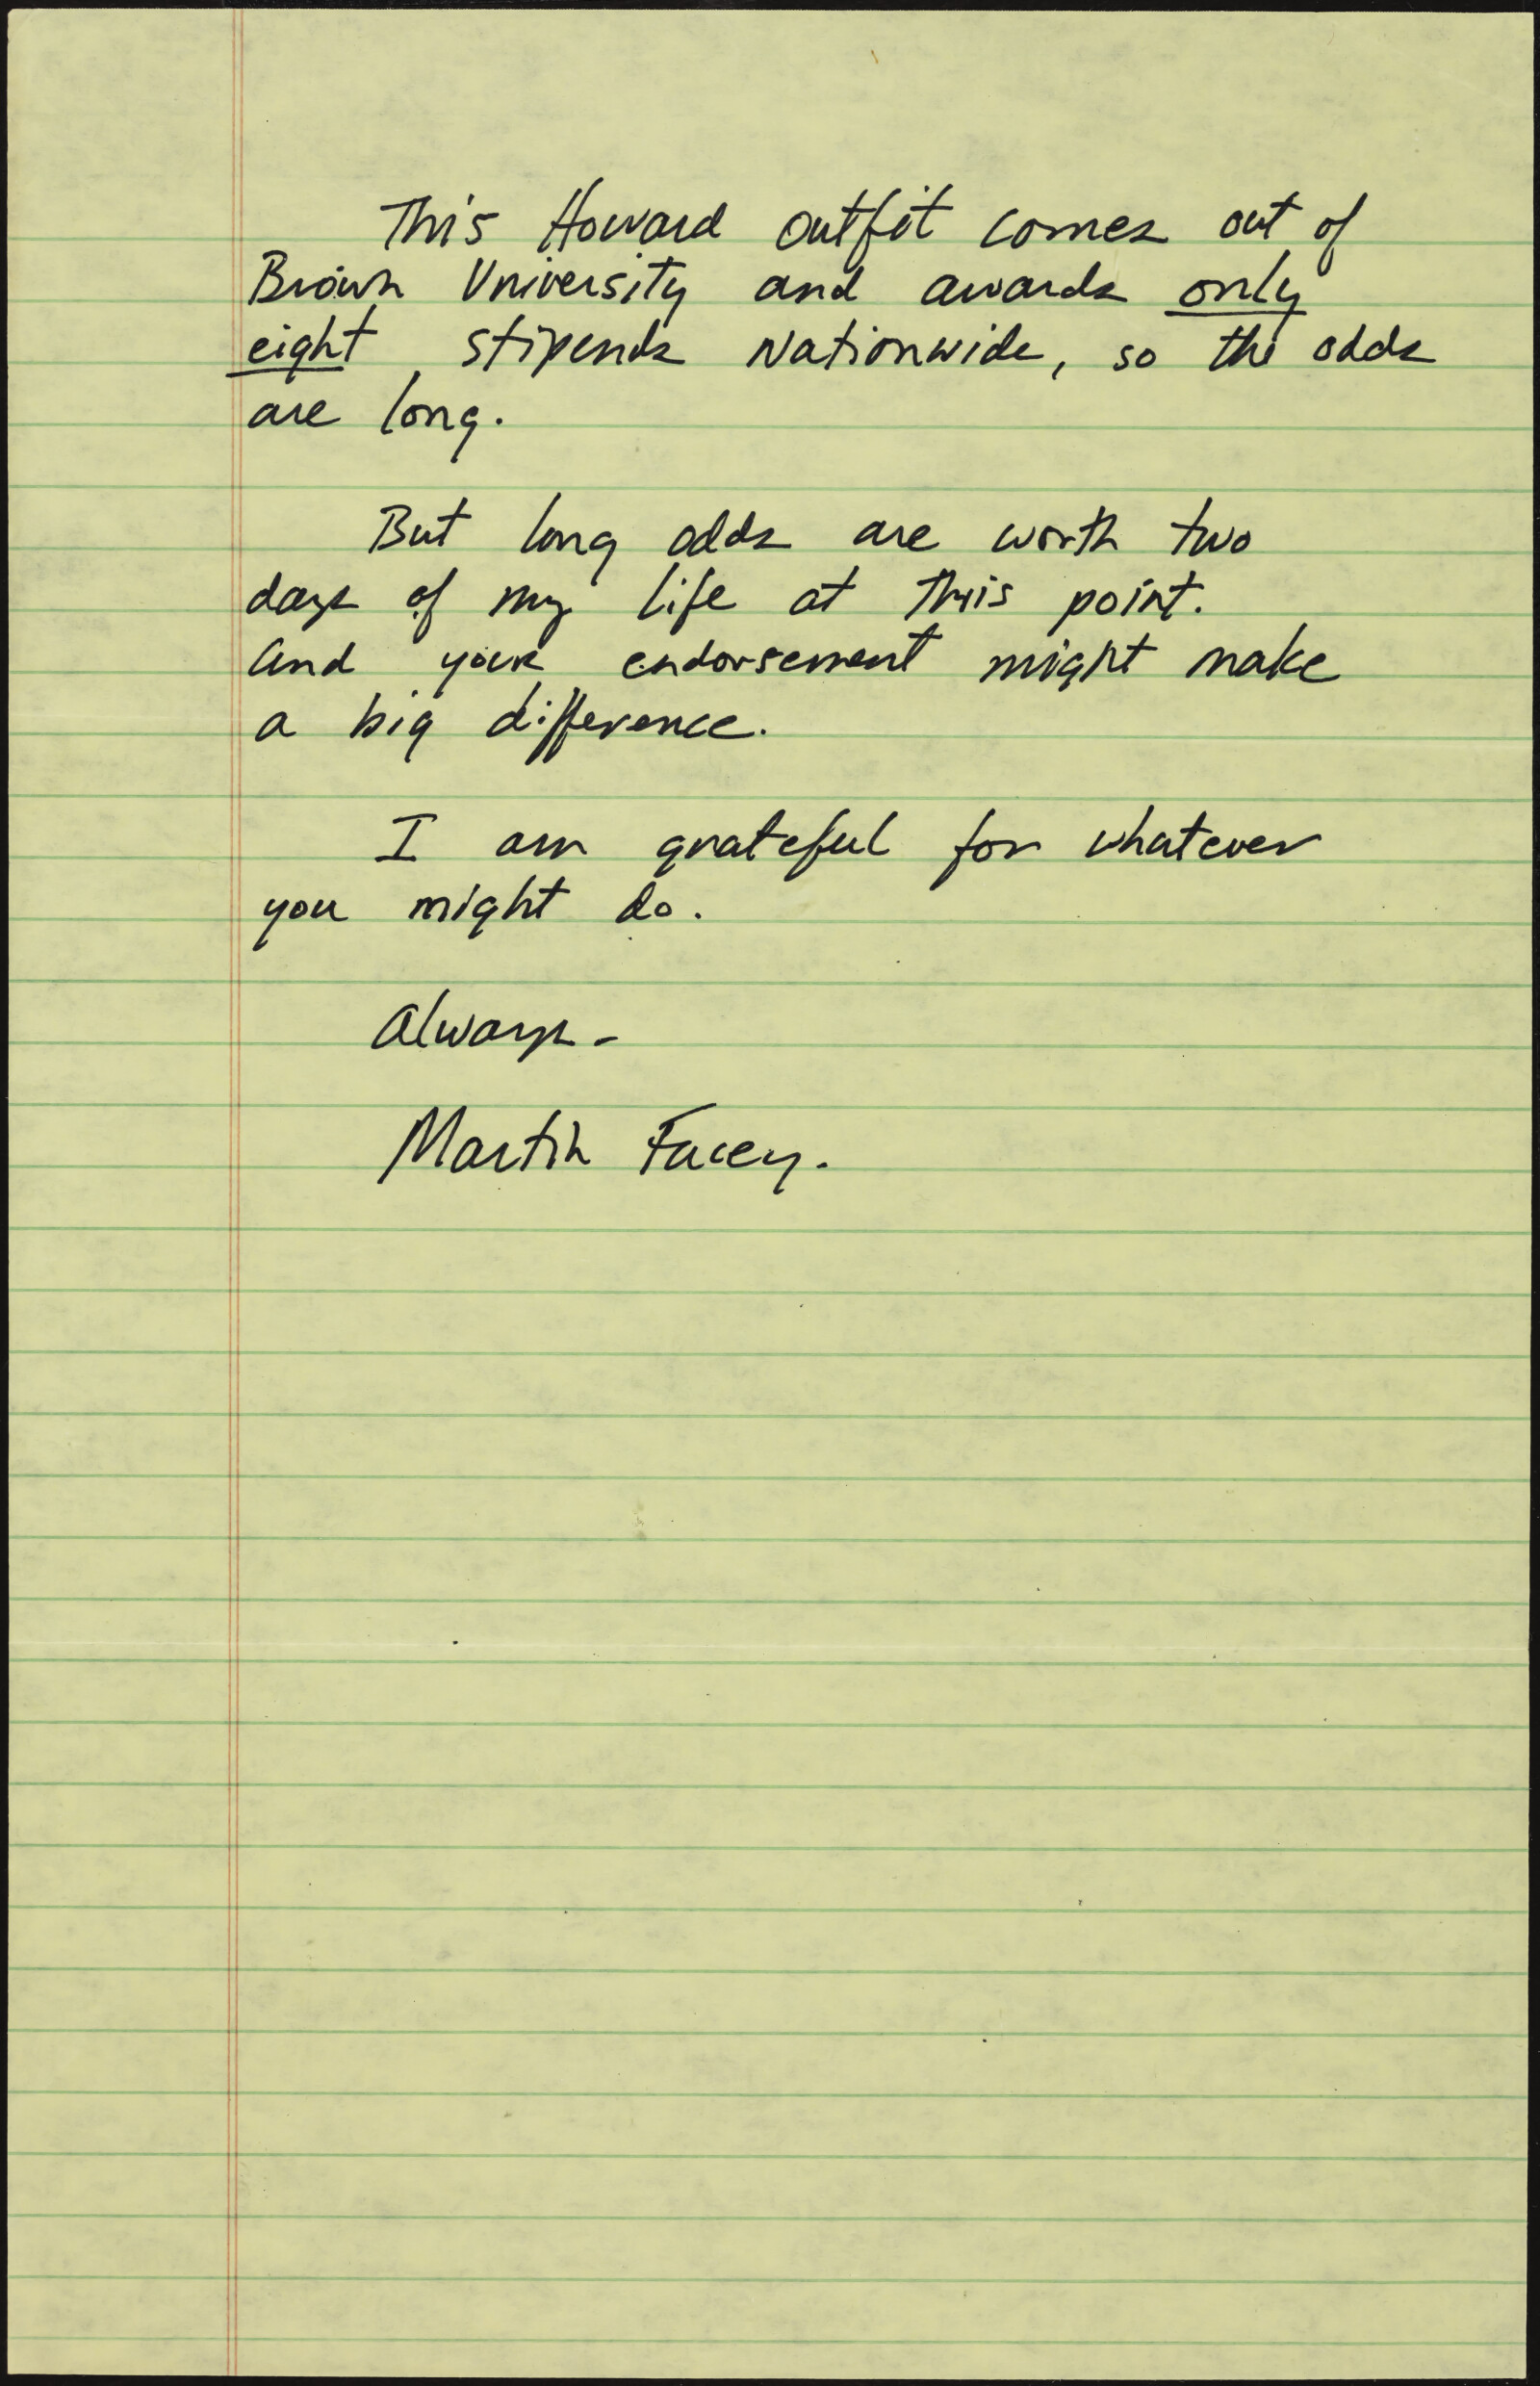 This Howard outfit comes out of
Brown University and awards only
eight stipends Nationwide, so the odds
are long.
But long odds are worth two
days of my life at this point.
And your endorsement might make
a big difference.
I am grateful for whatever
you might do.
Always -
Martin Facey.